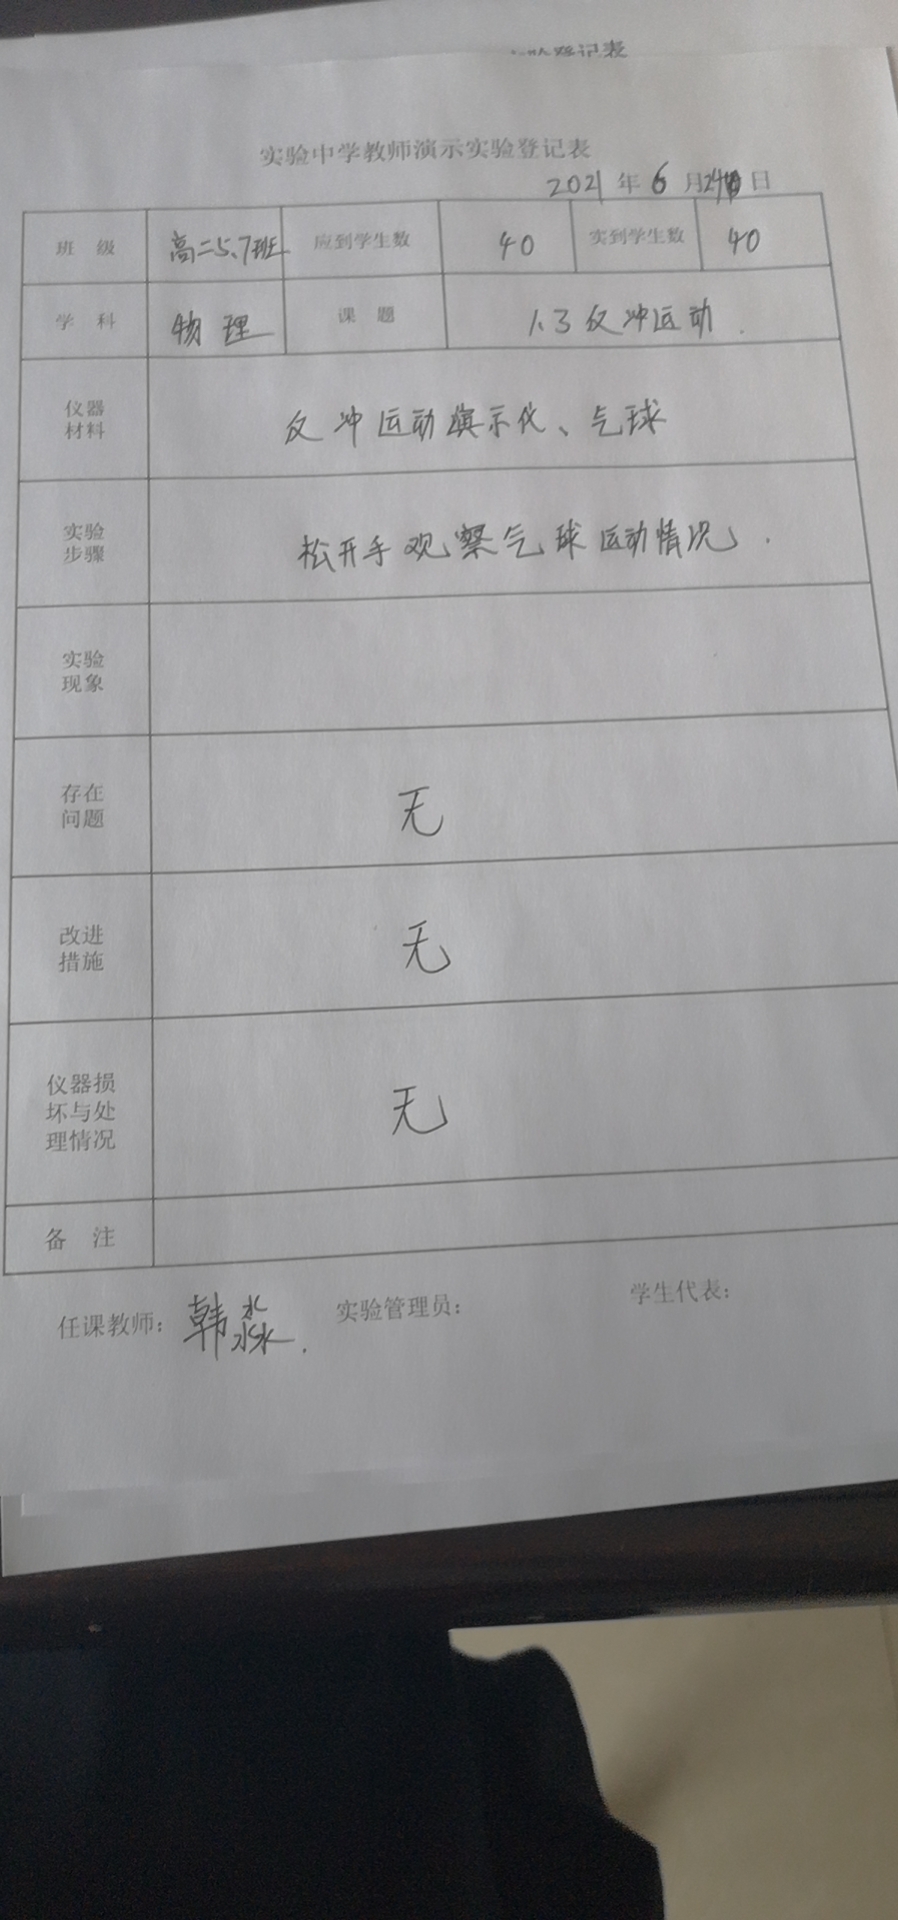 验登记表
实验中学教师演示实验登记表
2021 年 6 月 日
班 级 高二5、7班 应到学生数 40 实到学生数 40
学 科 物理 课 题 1.3反冲运动.
仪器
材料
反冲运动演示仪、气球
实验
步骤
松开手观察气球运动情况.
实验
现象
存在
问题
无
改进
措施
无
仪器损
坏与处
理情况
无
备 注
任课教师：韩淼. 实验管理员： 学生代表：